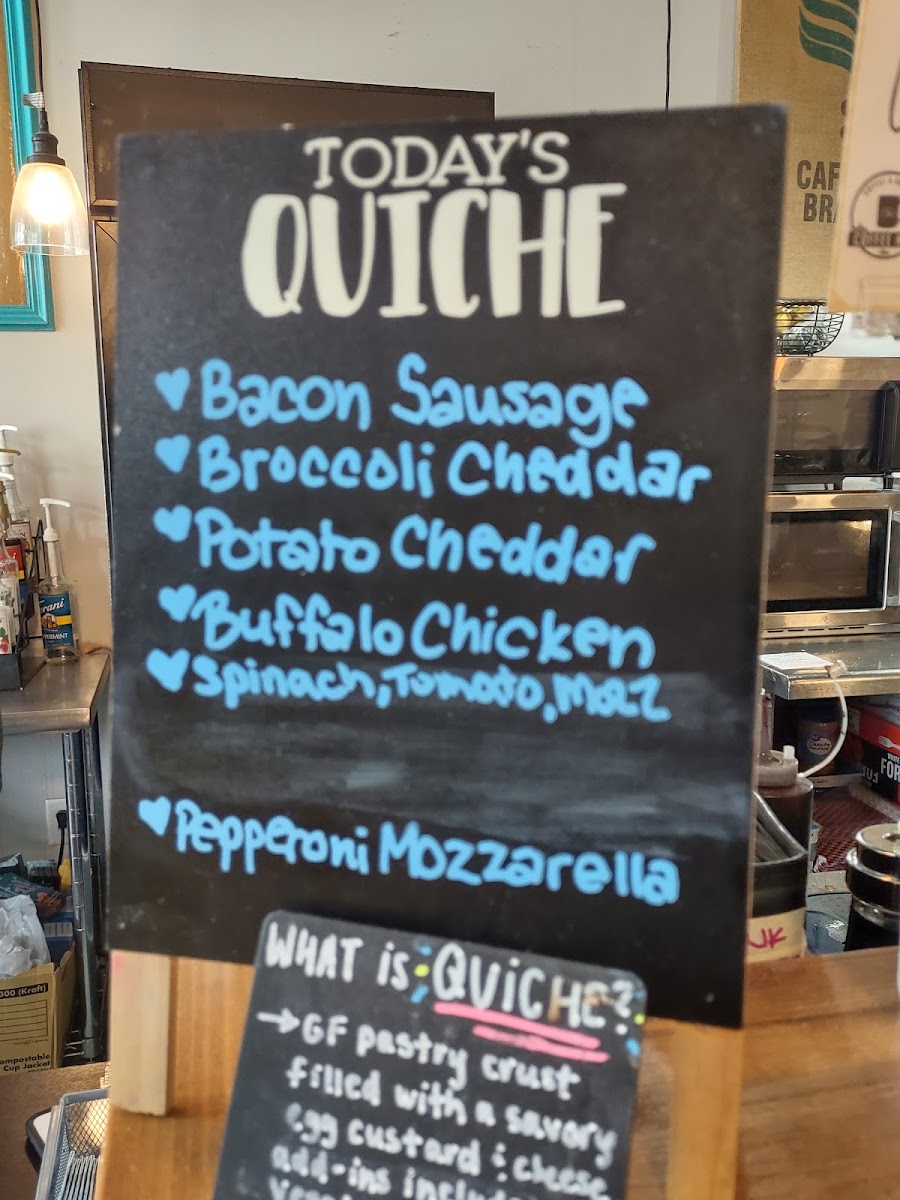 TODAY'S
QUICHE
Bacon Sausage
Broccoli Cheddar
Potato Cheddar
Buffalo Chicken
Spinach, Tomato, Moz
Pepperoni Mozzarella
WHAT is QUiCHE?
→GF pastry crust
filled with a savory
egg custard & cheese
add-ins
CAF
BRA
COFFEE
FOR
300 (Kraft)
Compostable
Cup Jacket